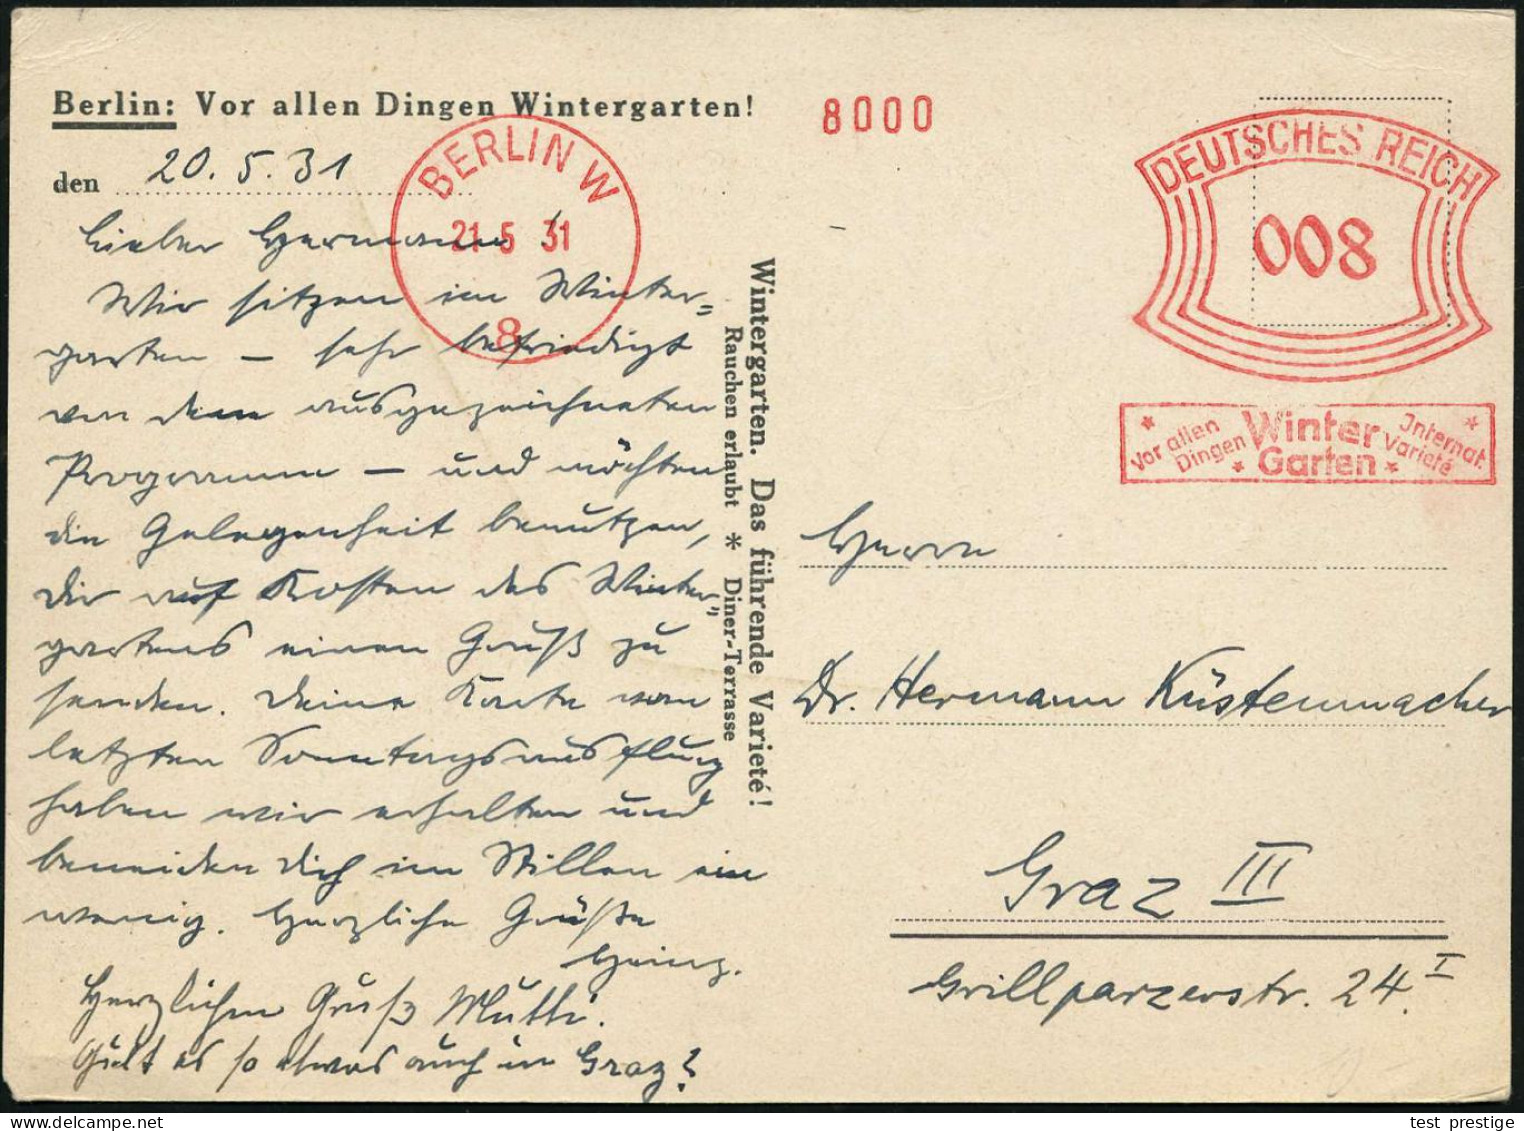 Berlin: Vor allen Dingen Wintergarten!
den 20.5.31
BERLIN W
21.5.31
8
8000
DEUTSCHES REICH
008
Vor allen Dingen
Winter Garten
Internat. Varieté
Lieber Hermann!
Wir sitzen im Winter=
garten – sehr befriedigt
von dem ausgezeichneten
Programm – und möchten
die Gelegenheit benutzen,
Dir auf Kosten des Winter=
gartens einen Gruß zu
senden. Deine Karte vom
letzten Sonntagsausflug
haben wir erhalten und
beneiden Dich im Stillen ein
wenig. Herzliche Grüße
Heinz.
Herzlichen Gruß Mutti.
Gibt es so etwas auch in Graz?
Wintergarten. Das führende Varieté!
Rauchen erlaubt * Diner-Terrasse
Herrn
Dr. Hermann Küstenmacher
Graz III
Grillparzerstr. 24. I
test prestige